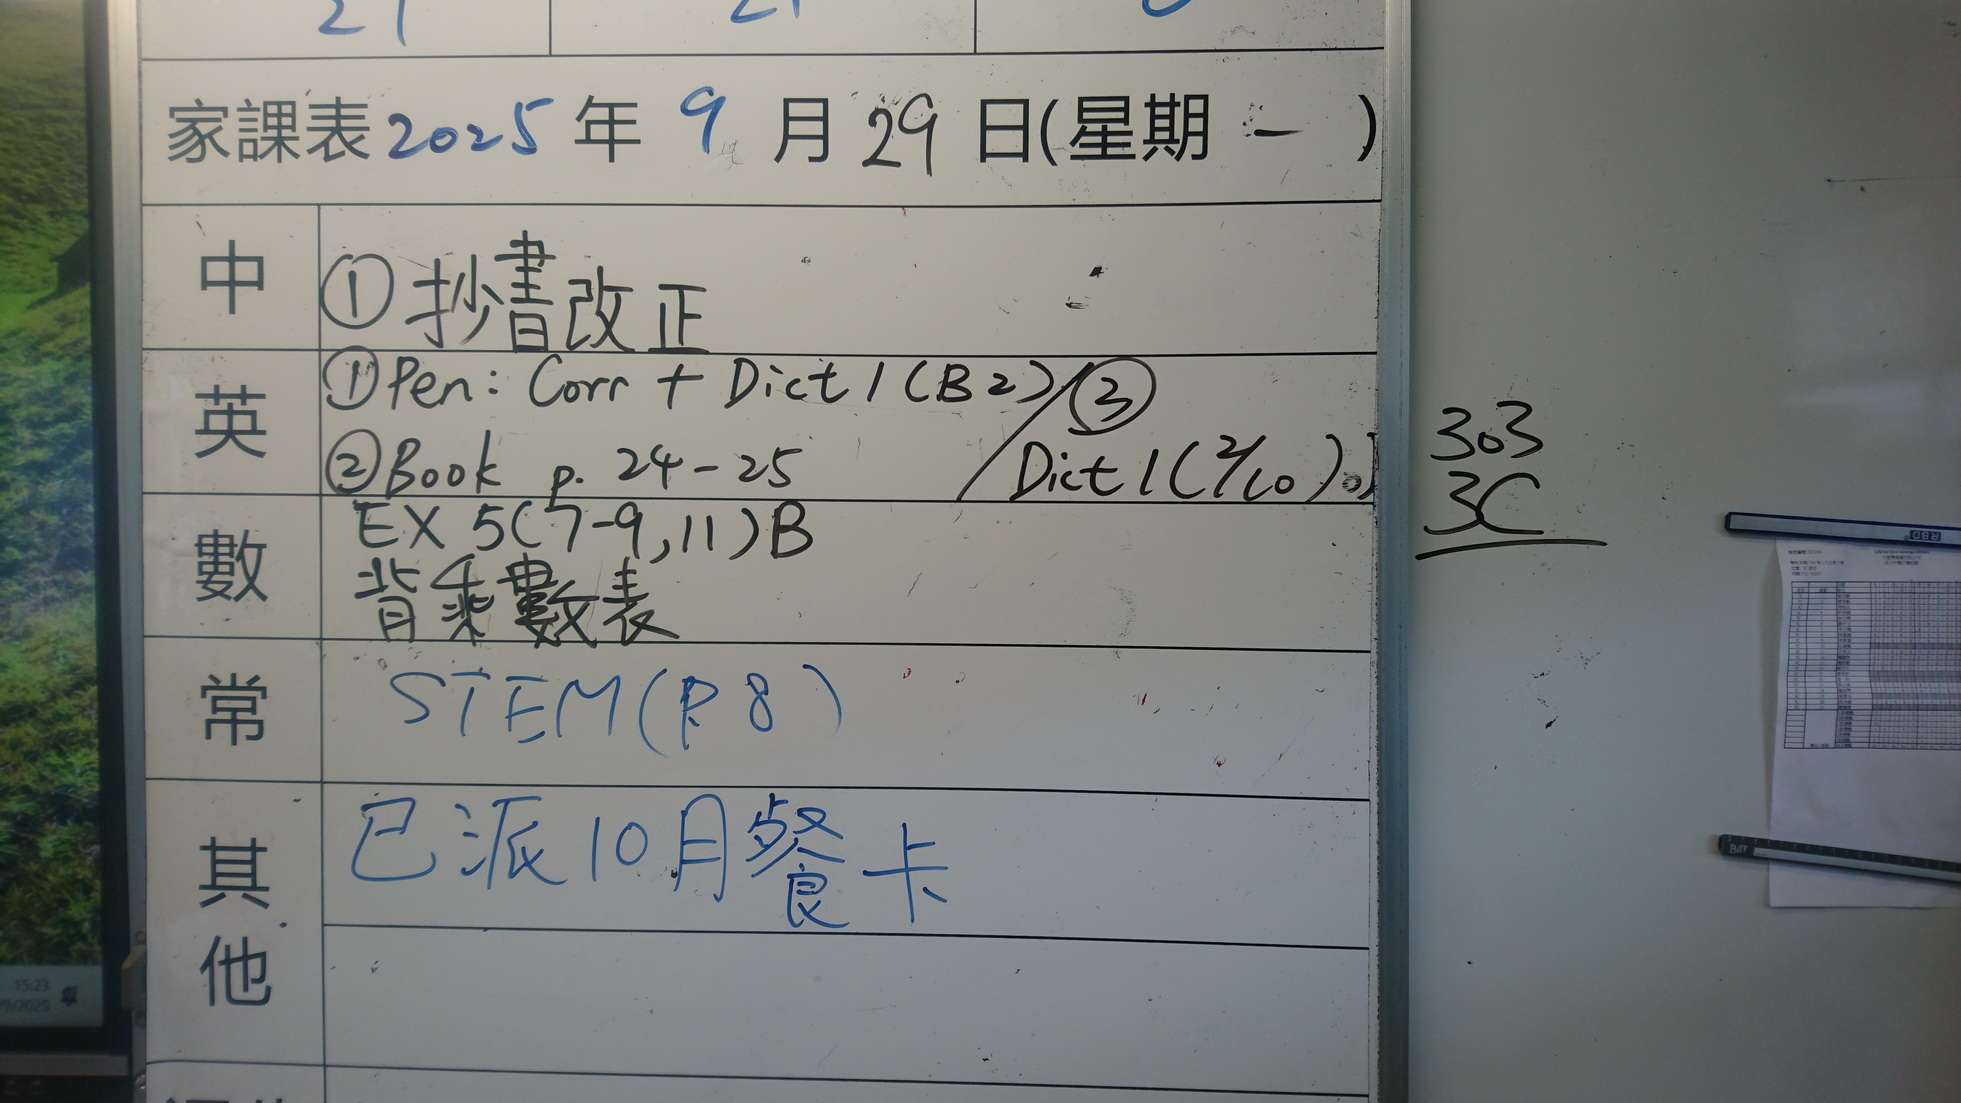 21 21 0
家課表2025年9月29日(星期一)
中 ①抄書改正
英 ①Pen: Corr + Dict 1 (B2) / ③
②Book p. 24-25 Dict 1 (2/10)
數 EX 5(7-9,11)B
背乘數表
常 STEM(P.8)
其他 已派10月餐卡
303
3C
15:23